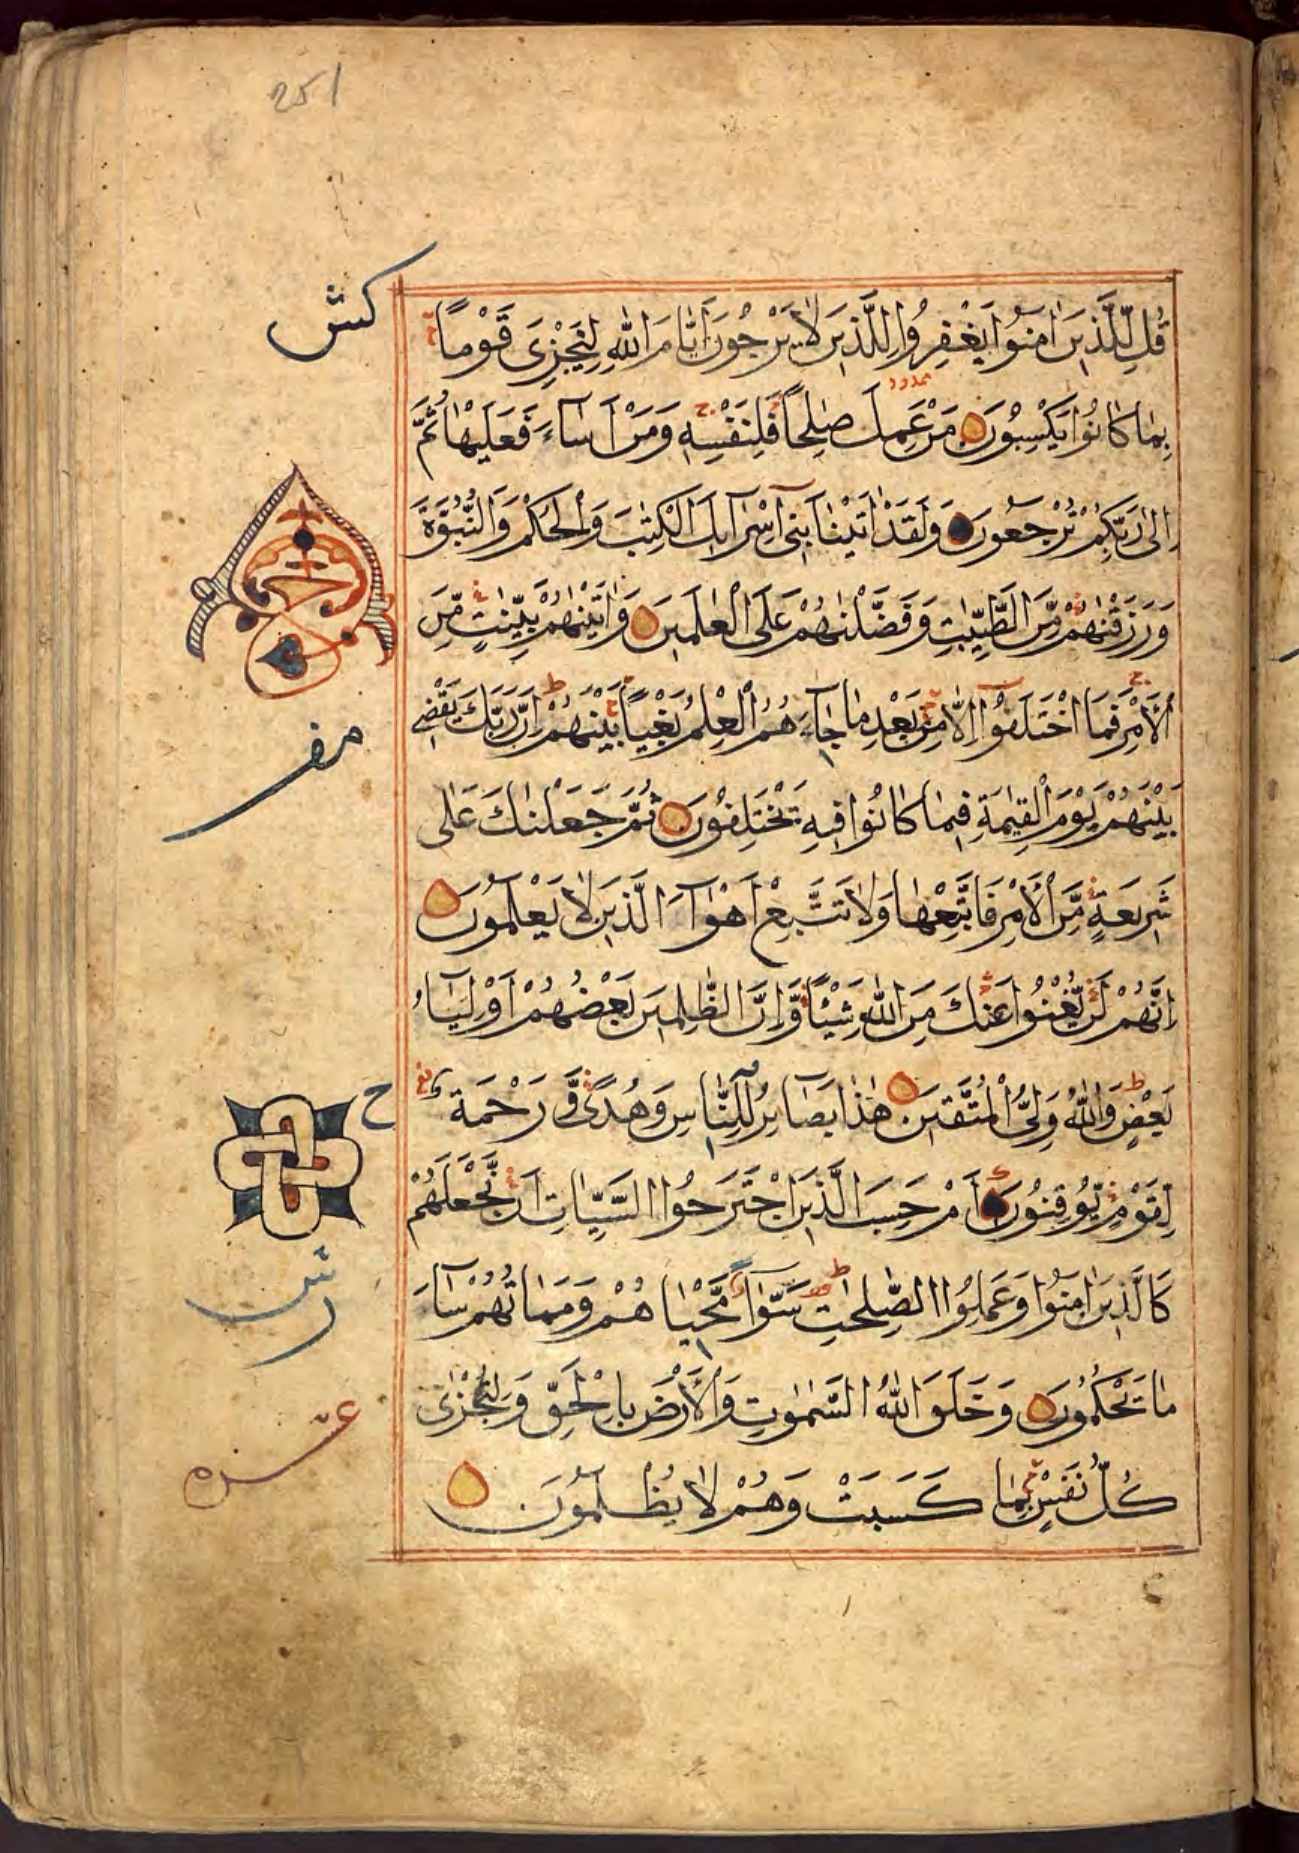 251
كش
قُل لِّلَّذِينَ اٰمَنُوا يَغْفِرُوا لِلَّذِينَ لَا يَرْجُونَ أَيَّامَ اللهِ لِيَجْزِىَ قَوْمًا
بِمَا كَانُوا يَكْسِبُونَ مَنْ عَمِلَ صٰلِحًا فَلِنَفْسِهِ وَمَنْ أَسَاءَ فَعَلَيْهَا ثُمَّ
اِلىٰ رَبِّكُمْ تُرْجَعُونَ وَلَقَدْ اٰتَيْنَا بَنِى اِسْرَآئِلَ الْكِتٰبَ وَالْحُكْمَ وَالنُّبُوَّةَ
وَرَزَقْنٰهُمْ مِّنَ الطَّيِّبٰتِ وَفَضَّلْنٰهُمْ عَلَى الْعٰلَمِينَ وَاٰتَيْنٰهُمْ بَيِّنٰتٍ مِّنَ
الْأَمْرِ فَمَا اخْتَلَفُوٓا اِلَّا مِنْ بَعْدِ مَا جَآءَهُمُ الْعِلْمُ بَغْيًا بَيْنَهُمْ اِنَّ رَبَّكَ يَقْضِى
بَيْنَهُمْ يَوْمَ الْقِيٰمَةِ فِيمَا كَانُوا فِيهِ يَخْتَلِفُونَ ثُمَّ جَعَلْنٰكَ عَلٰى
شَرِيعَةٍ مِّنَ الْأَمْرِ فَاتَّبِعْهَا وَلَا تَتَّبِعْ اَهْوَآءَ الَّذِينَ لَا يَعْلَمُونَ
اِنَّهُمْ لَنْ يُّغْنُوا عَنْكَ مِنَ اللهِ شَيْئًا وَّاِنَّ الظّٰلِمِينَ بَعْضُهُمْ اَوْلِيَآءُ
بَعْضٍ وَاللهُ وَلِىُّ الْمُتَّقِينَ هٰذَا بَصَائِرُ لِلنَّاسِ وَهُدًى وَّرَحْمَةٌ
لِّقَوْمٍ يُّوقِنُونَ أَمْ حَسِبَ الَّذِينَ اجْتَرَحُوا السَّيِّئَاتِ اَنْ نَّجْعَلَهُمْ
كَالَّذِينَ اٰمَنُوا وَعَمِلُوا الصّٰلِحٰتِ سَوَآءً مَّحْيَاهُمْ وَمَمَاتُهُمْ سَآءَ
مَا يَحْكُمُونَ وَخَلَقَ اللهُ السَّمٰوٰتِ وَالْأَرْضَ بِالْحَقِّ وَلِتُجْزٰى
كُلُّ نَفْسٍ بِمَا كَسَبَتْ وَهُمْ لَا يُظْلَمُونَ
ح